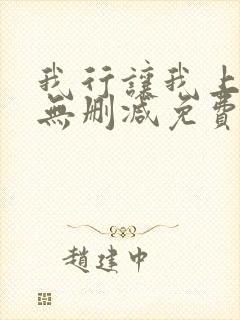 我行讓我上
無刪減免費
趙建中